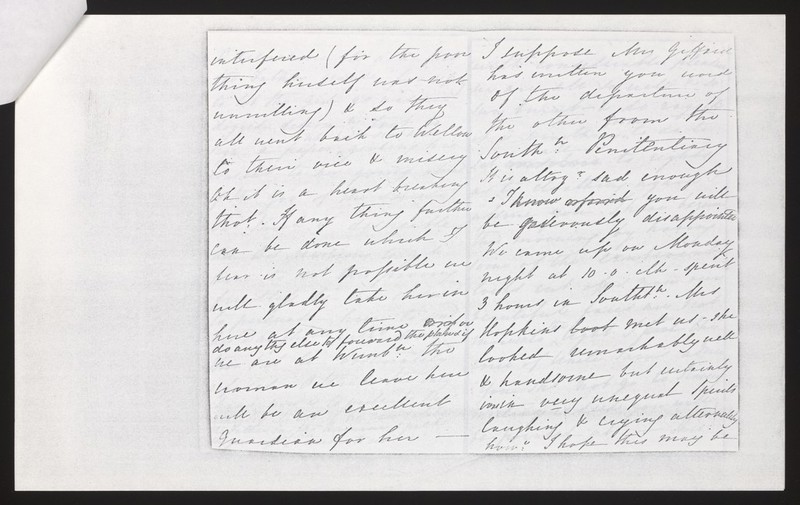 interfered (for the poor
thing himself was not
unwilling) & so they
all went back to Wellow
to their vice & misery
Oh it is a heart breaking
thot. If any thing further
can be done which I
fear is not possible we
will gladly take her in
here at any time and or
do any thg else to forward the plans if
we are at Wimbn the
woman we leave here
will be an excellent
Guardian for her —
I suppose Mrs
has written you word
of the departure of
the other from the
Southn Penitentiary
It is altogr sad enough
& I know you will
be grievously disappointed
We came up on Monday
night at 10.0.clk - spent
3 hours in Southtn. Mrs
Hopkins boot met us - she
looked remarkably well
& handsome but certainly
was in very unequal spirits
laughing & crying alternately
howr I hope this may be